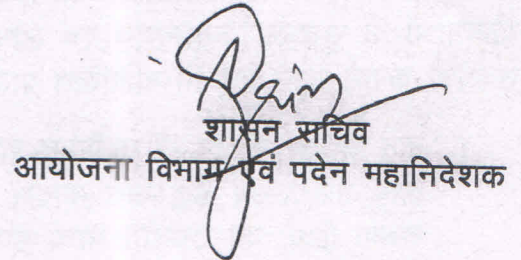 शासन सचिव
आयोजना विभाग एवं पदेन महानिदेशक